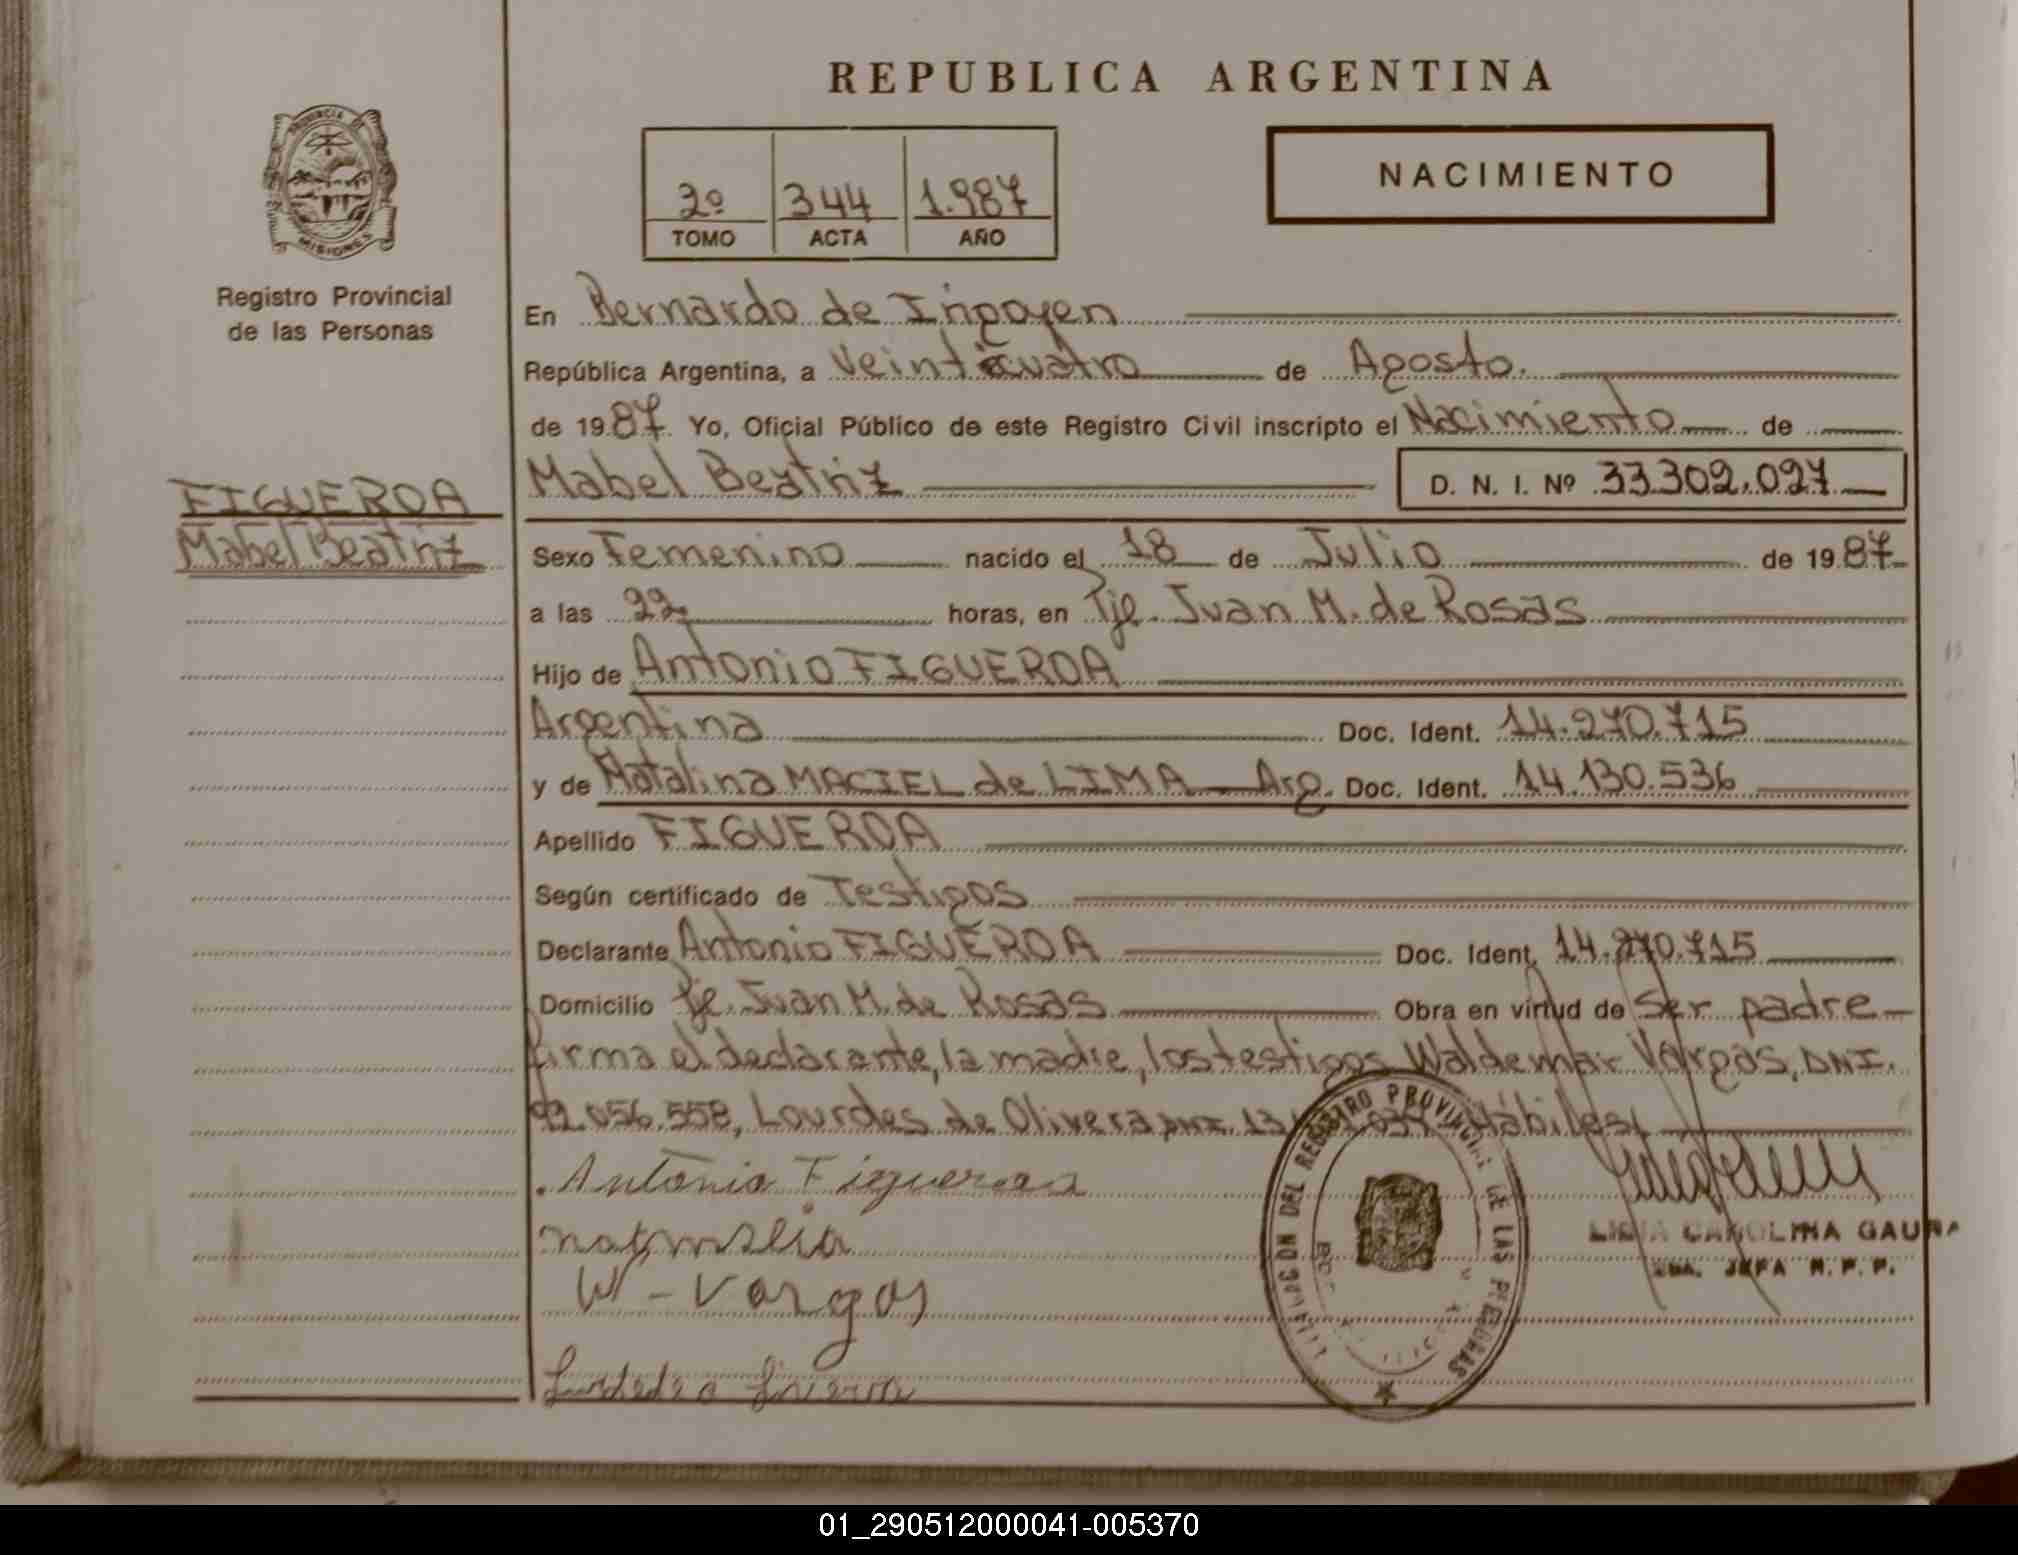 REPUBLICA ARGENTINA
PROVINCIA DE
MISIONES
Registro Provincial
de las Personas
2º 344 1.987
TOMO ACTA AÑO
NACIMIENTO
En Bernardo de Irigoyen
República Argentina, a Veinticuatro de Agosto.
de 1987. Yo, Oficial Público de este Registro Civil inscripto el Nacimiento de
FIGUEROA
Mabel Beatriz
Mabel Beatriz D. N. I. Nº 33.302.027
Sexo Femenino nacido el 18 de Julio de 1987
a las 22 horas, en Pje. Juan M. de Rosas
Hijo de Antonio FIGUEROA
Argentina Doc. Ident. 14.270.715
y de Natalina MACIEL de LIMA Arg. Doc. Ident. 14.130.536
Apellido FIGUEROA
Según certificado de Testigos
Declarante Antonio FIGUEROA Doc. Ident. 14.270.715
Domicilio Pje. Juan M. de Rosas Obra en virtud de Ser padre
firma el declarante, la madre, los testigos Waldemar Vargas, DNI.
92.056.558, Lourdes de Olivera DNI 13. Hábiles
Antonio Figueroa
W - Vargas
REGISTRO PROVINCIAL DE LAS PERSONAS
CAROLINA GAUNA
JEFA R. P. P.
01_290512000041-005370